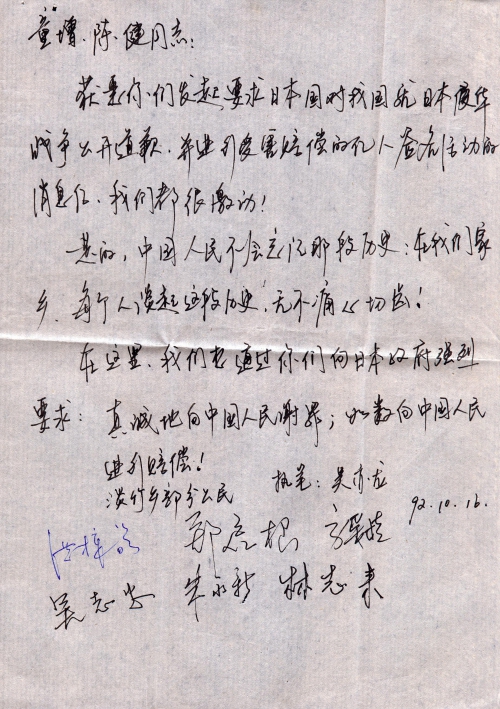 童增、陈健同志:
获悉你们发起要求日本国对我国就日本侵华
战争公开道歉、并进行受害赔偿的万人签名活动的
消息后,我们都很激动!
是的,中国人民不会忘记那段历史;在我们家
乡,每个人谈起这段历史,无不痛心切齿!
在这里,我们想通过你们向日本政府强烈
要求:真诚地向中国人民谢罪;如数向中国人民
进行赔偿!
淡竹乡部分公民 执笔:吴亦龙
92.10.16.
郑 根
吴志 朱永 林志来